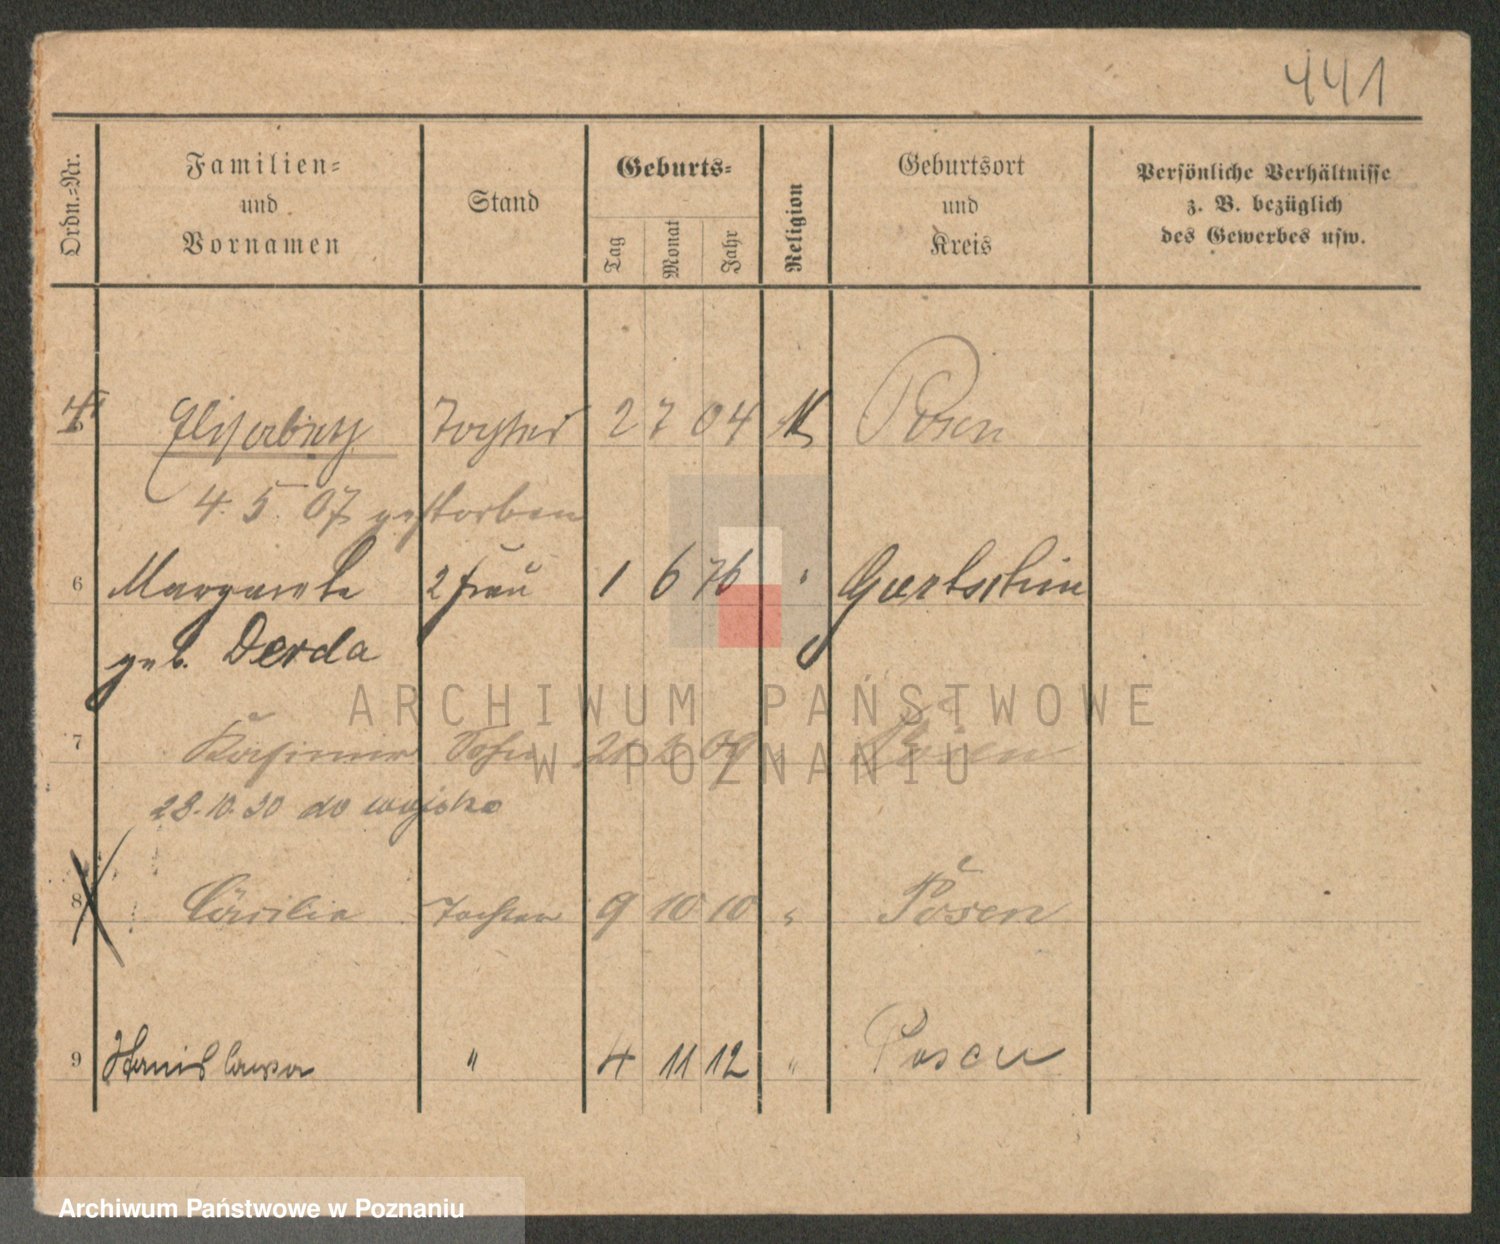 441
Ordn.=Nr.
Familien= und Vornamen
Stand
Geburts=
Tag
Monat
Jahr
Religion
Geburtsort und Kreis
Persönliche Verhältnisse
z. B. bezüglich
des Gewerbes usw.
Elisabeth Tochter 2 7 04 K Posen
4. 5. 07 gestorben
6 Margarete 2 Frau 1 6 76 " Gurtschin
geb. Derda
7 Kasimir Sohn 2 09 Posen
28.10.30 do wojska
8 Cäcilie Tochter 9 10 10 " Posen
9 Stanislawa " 4 11 12 " Posen
ARCHIWUM PAŃSTWOWE
W POZNANIU
Archiwum Państwowe w Poznaniu